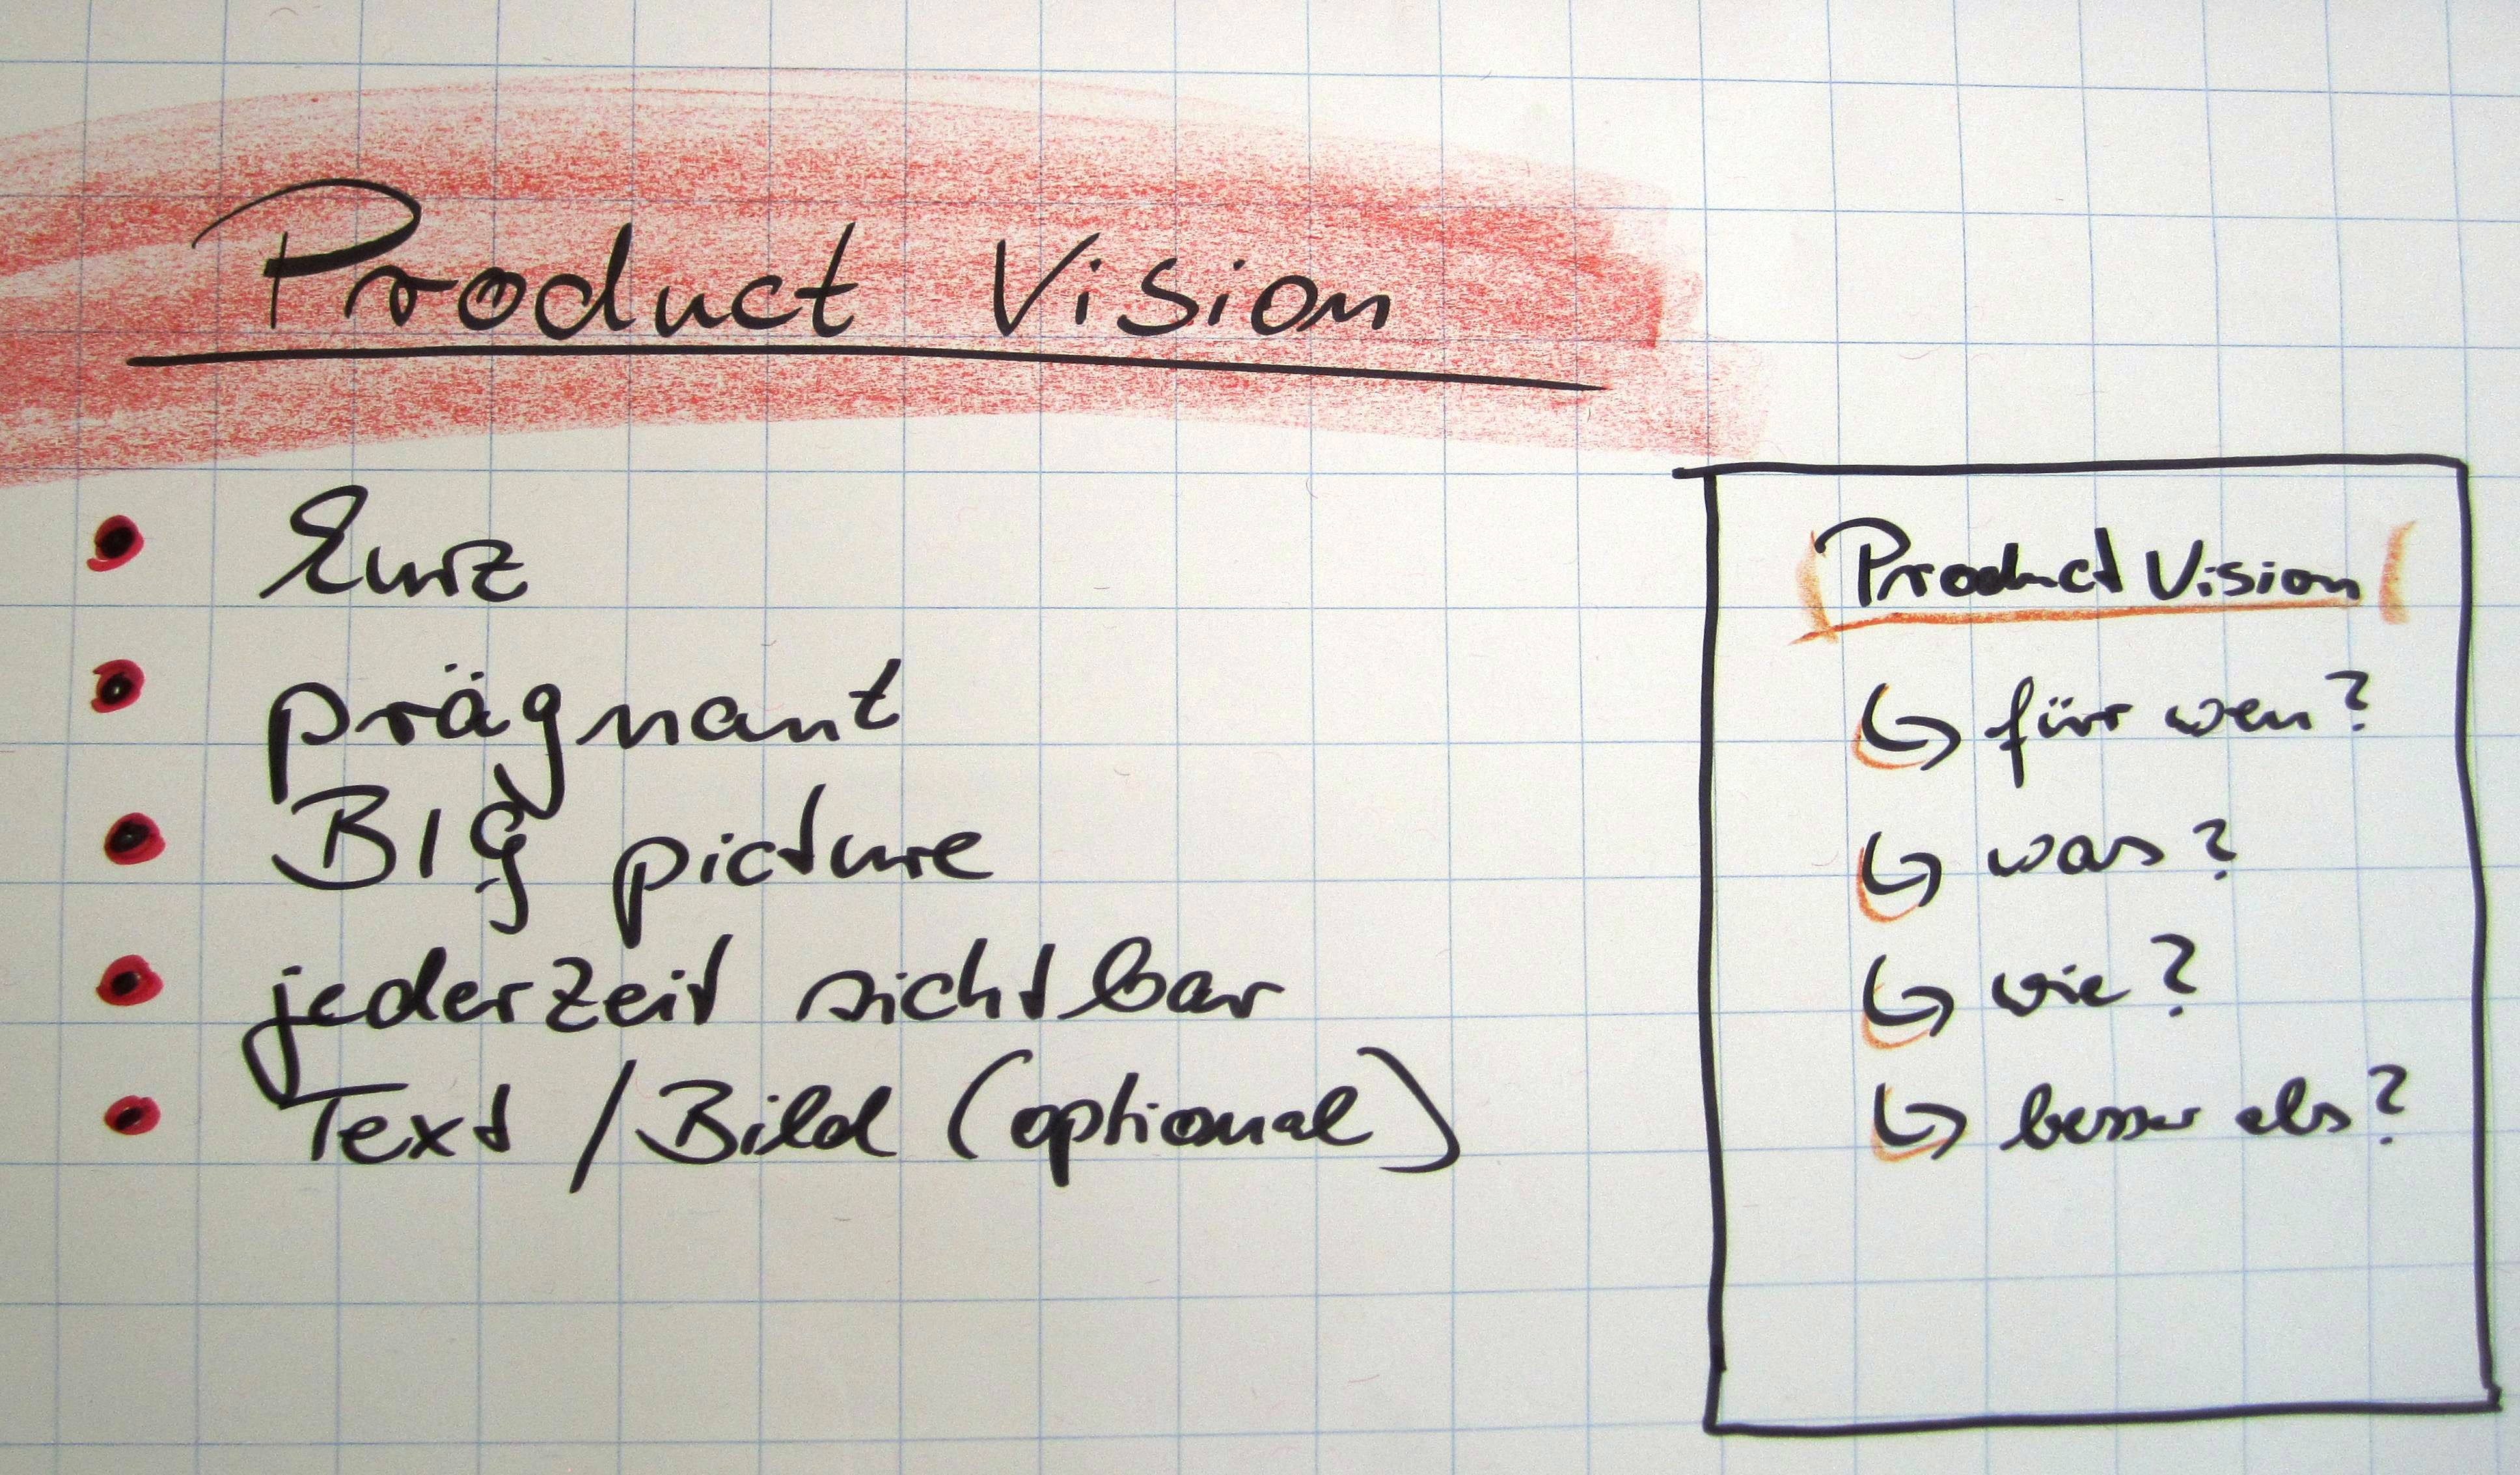 Product Vision
Kurz
prägnant
BIG picture
jederzeit sichtbar
Text / Bild (optional)
Product Vision
für wen?
was?
wie?
besser als?